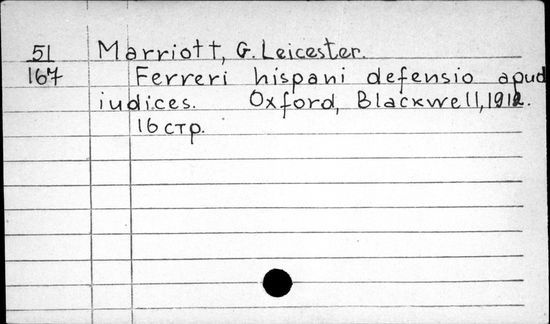 51
167
Marriott, G. Leicester.
Ferreri hispani defensio apud
iudices. Oxford, Blackwell, 1912.
16 стр.